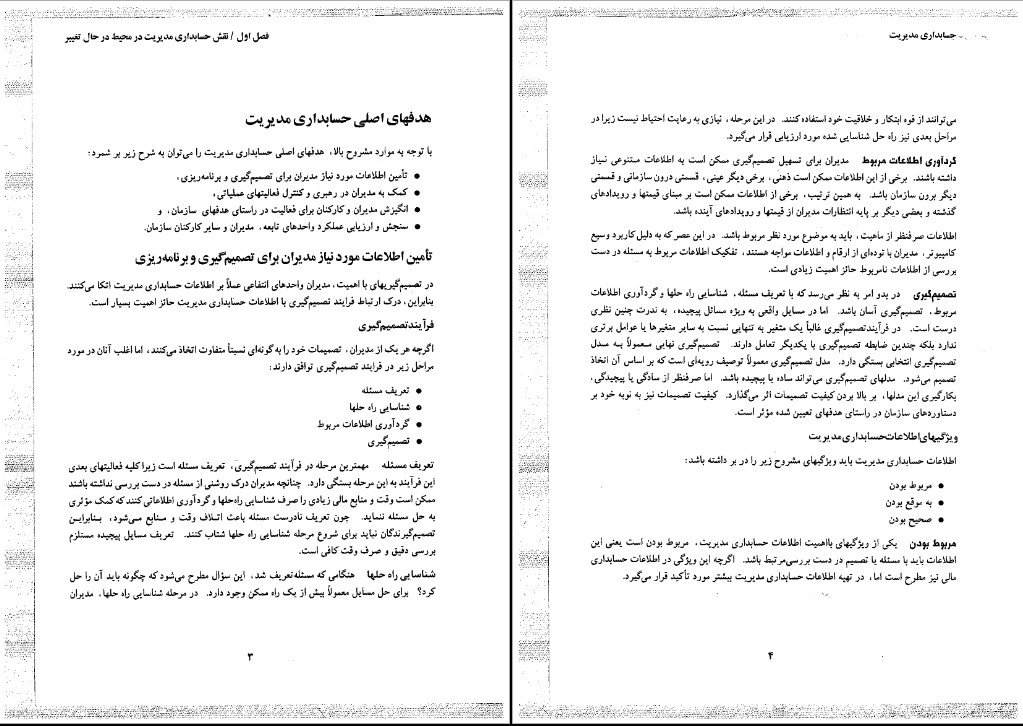 فصل اول / نقش حسابداری مدیریت در محیط در حال تغییر
هدفهای اصلی حسابداری مدیریت
با توجه به موارد مشروح بالا، هدفهای اصلی حسابداری مدیریت را می‌توان به شرح زیر بر شمرد:
● تأمین اطلاعات مورد نیاز مدیران برای تصمیم‌گیری و برنامه‌ریزی،
● کمک به مدیران در رهبری و کنترل فعالیتهای عملیاتی،
● انگیزش مدیران و کارکنان برای فعالیت در راستای هدفهای سازمان، و
● سنجش و ارزیابی عملکرد واحدهای تابعه، مدیران و سایر کارکنان سازمان.
تأمین اطلاعات مورد نیاز مدیران برای تصمیم‌گیری و برنامه‌ریزی
در تصمیم‌گیریهای با اهمیت، مدیران واحدهای انتفاعی عملاً بر اطلاعات حسابداری مدیریت اتکا می‌کنند.
بنابراین، درک ارتباط فرایند تصمیم‌گیری با اطلاعات حسابداری مدیریت حائز اهمیت بسیار است.
فرآیند تصمیم‌گیری
اگرچه هر یک از مدیران، تصمیمات خود را به گونه‌ای نسبتاً متفاوت اتخاذ می‌کنند، اما اغلب آنان در مورد
مراحل زیر در فرایند تصمیم‌گیری توافق دارند:
● تعریف مسئله
● شناسایی راه حلها
● گردآوری اطلاعات مربوط
● تصمیم‌گیری
تعریف مسئله مهمترین مرحله در فرآیند تصمیم‌گیری، تعریف مسئله است زیرا کلیه فعالیتهای بعدی
این فرآیند به این مرحله بستگی دارد. چنانچه مدیران درک روشنی از مسئله در دست بررسی نداشته باشند
ممکن است وقت و منابع مالی زیادی را صرف شناسایی راه‌حلها و گردآوری اطلاعاتی کنند که کمک مؤثری
به حل مسئله ننماید. چون تعریف نادرست مسئله باعث اتلاف وقت و منابع می‌شود، بنابراین
تصمیم‌گیرندگان نباید برای شروع مرحله شناسایی راه حلها شتاب کنند. تعریف مسایل پیچیده مستلزم
بررسی دقیق و صرف وقت کافی است.
شناسایی راه حلها هنگامی که مسئله تعریف شد، این سؤال مطرح می‌شود که چگونه باید آن را حل
کرد؟ برای حل مسایل معمولاً بیش از یک راه ممکن وجود دارد. در مرحله شناسایی راه حلها، مدیران
۳
حسابداری مدیریت
می‌توانند از قوه ابتکار و خلاقیت خود استفاده کنند. در این مرحله، نیازی به رعایت احتیاط نیست زیرا در
مراحل بعدی نیز راه حل شناسایی شده مورد ارزیابی قرار می‌گیرد.
گردآوری اطلاعات مربوط مدیران برای تسهیل تصمیم‌گیری ممکن است به اطلاعات متنوعی نیاز
داشته باشند. برخی از این اطلاعات ممکن است ذهنی، برخی دیگر عینی، قسمتی درون سازمانی و قسمتی
دیگر برون سازمان باشد. به همین ترتیب، برخی از اطلاعات ممکن است بر مبنای قیمتها و رویدادهای
گذشته و بعضی دیگر بر پایه انتظارات مدیران از قیمتها و رویدادهای آینده باشد.
اطلاعات صرفنظر از ماهیت، باید به موضوع مورد نظر مربوط باشد. در این عصر که به دلیل کاربرد وسیع
کامپیوتر، مدیران با توده‌ای از ارقام و اطلاعات مواجه هستند، تفکیک اطلاعات مربوط به مسئله در دست
بررسی از اطلاعات نامربوط حائز اهمیت زیادی است.
تصمیم‌گیری در بدو امر به نظر می‌رسد که با تعریف مسئله، شناسایی راه حلها و گردآوری اطلاعات
مربوط، تصمیم‌گیری آسان باشد. اما در مسایل واقعی به ویژه مسائل پیچیده، به ندرت چنین نظری
درست است. در فرآیند تصمیم‌گیری غالباً یک متغیر به تنهایی نسبت به سایر متغیرها یا عوامل برتری
ندارد بلکه چندین ضابطه تصمیم‌گیری با یکدیگر تعامل دارند. تصمیم‌گیری نهایی معمولاً به مدل
تصمیم‌گیری انتخابی بستگی دارد. مدل تصمیم‌گیری معمولاً توصیف رویه‌ای است که بر اساس آن اتخاذ
تصمیم می‌شود. مدلهای تصمیم‌گیری می‌تواند ساده یا پیچیده باشد. اما صرفنظر از سادگی یا پیچیدگی،
بکارگیری این مدلها، بر بالا بردن کیفیت تصمیمات اثر می‌گذارد. کیفیت تصمیمات نیز به نوبه خود بر
دستاوردهای سازمان در راستای هدفهای تعیین شده مؤثر است.
ویژگیهای اطلاعات حسابداری مدیریت
اطلاعات حسابداری مدیریت باید ویژگیهای مشروح زیر را در بر داشته باشد:
● مربوط بودن
● به موقع بودن
● صحیح بودن
مربوط بودن یکی از ویژگیهای بااهمیت اطلاعات حسابداری مدیریت، مربوط بودن است یعنی این
اطلاعات باید با مسئله یا تصمیم در دست بررسی مرتبط باشد. اگرچه این ویژگی در اطلاعات حسابداری
مالی نیز مطرح است اما، در تهیه اطلاعات حسابداری مدیریت بیشتر مورد تأکید قرار می‌گیرد.
۴